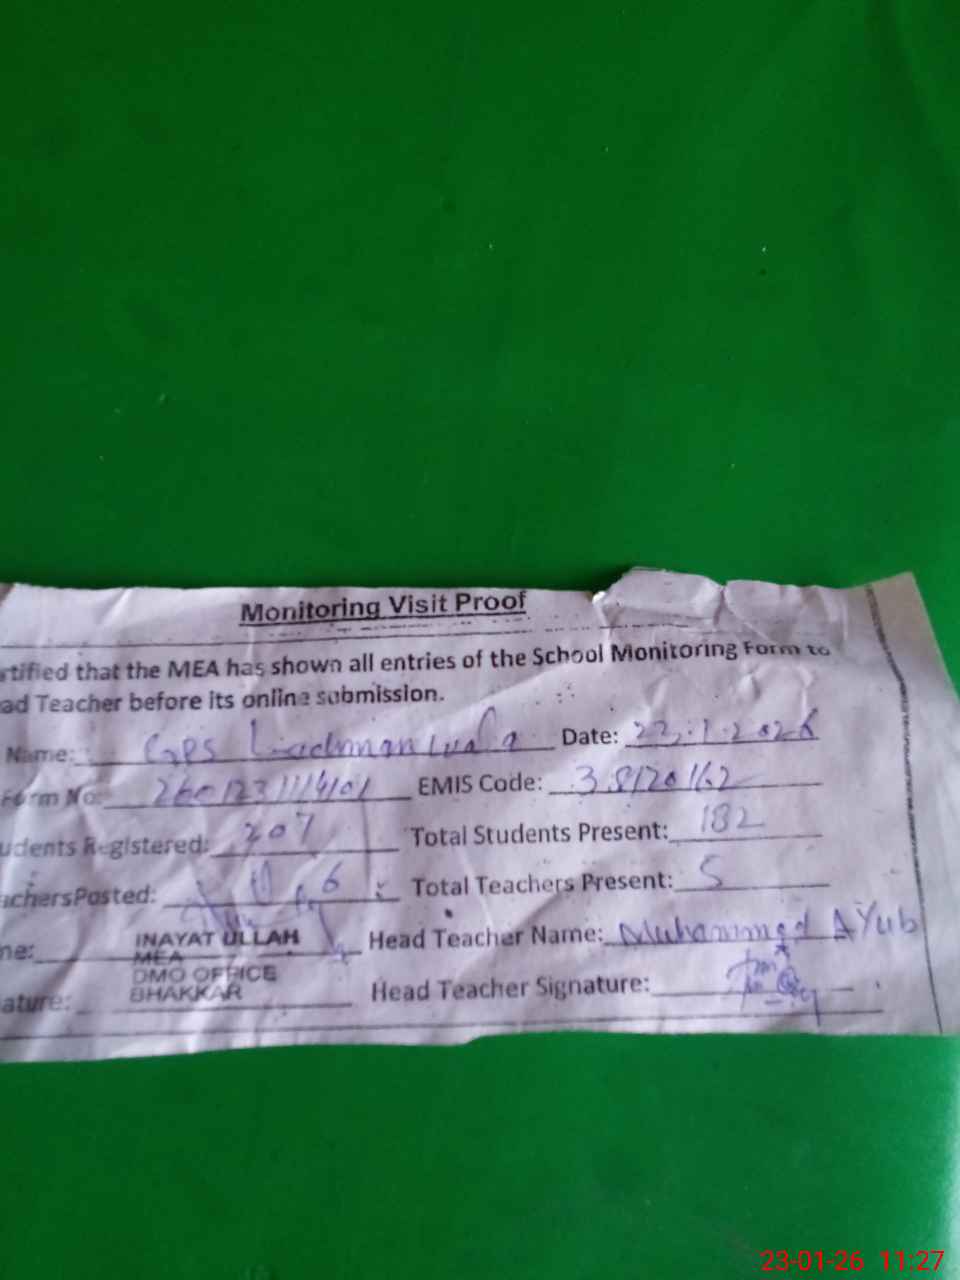 Monitoring Visit Proof
rtified that the MEA has shown all entries of the School Monitoring Form to
ad Teacher before its online submission.
Name: GPS Date: 23.1.2026
Form No: EMIS Code: 38120162
udents Registered: 207 Total Students Present: 182
achersPosted: 6 Total Teachers Present: 5
me: INAYAT ULLAH Head Teacher Name: Muhammad AYub
MEA
DMO OFFICE
ature: BHAKKAR Head Teacher Signature:
23-01-26 11:27